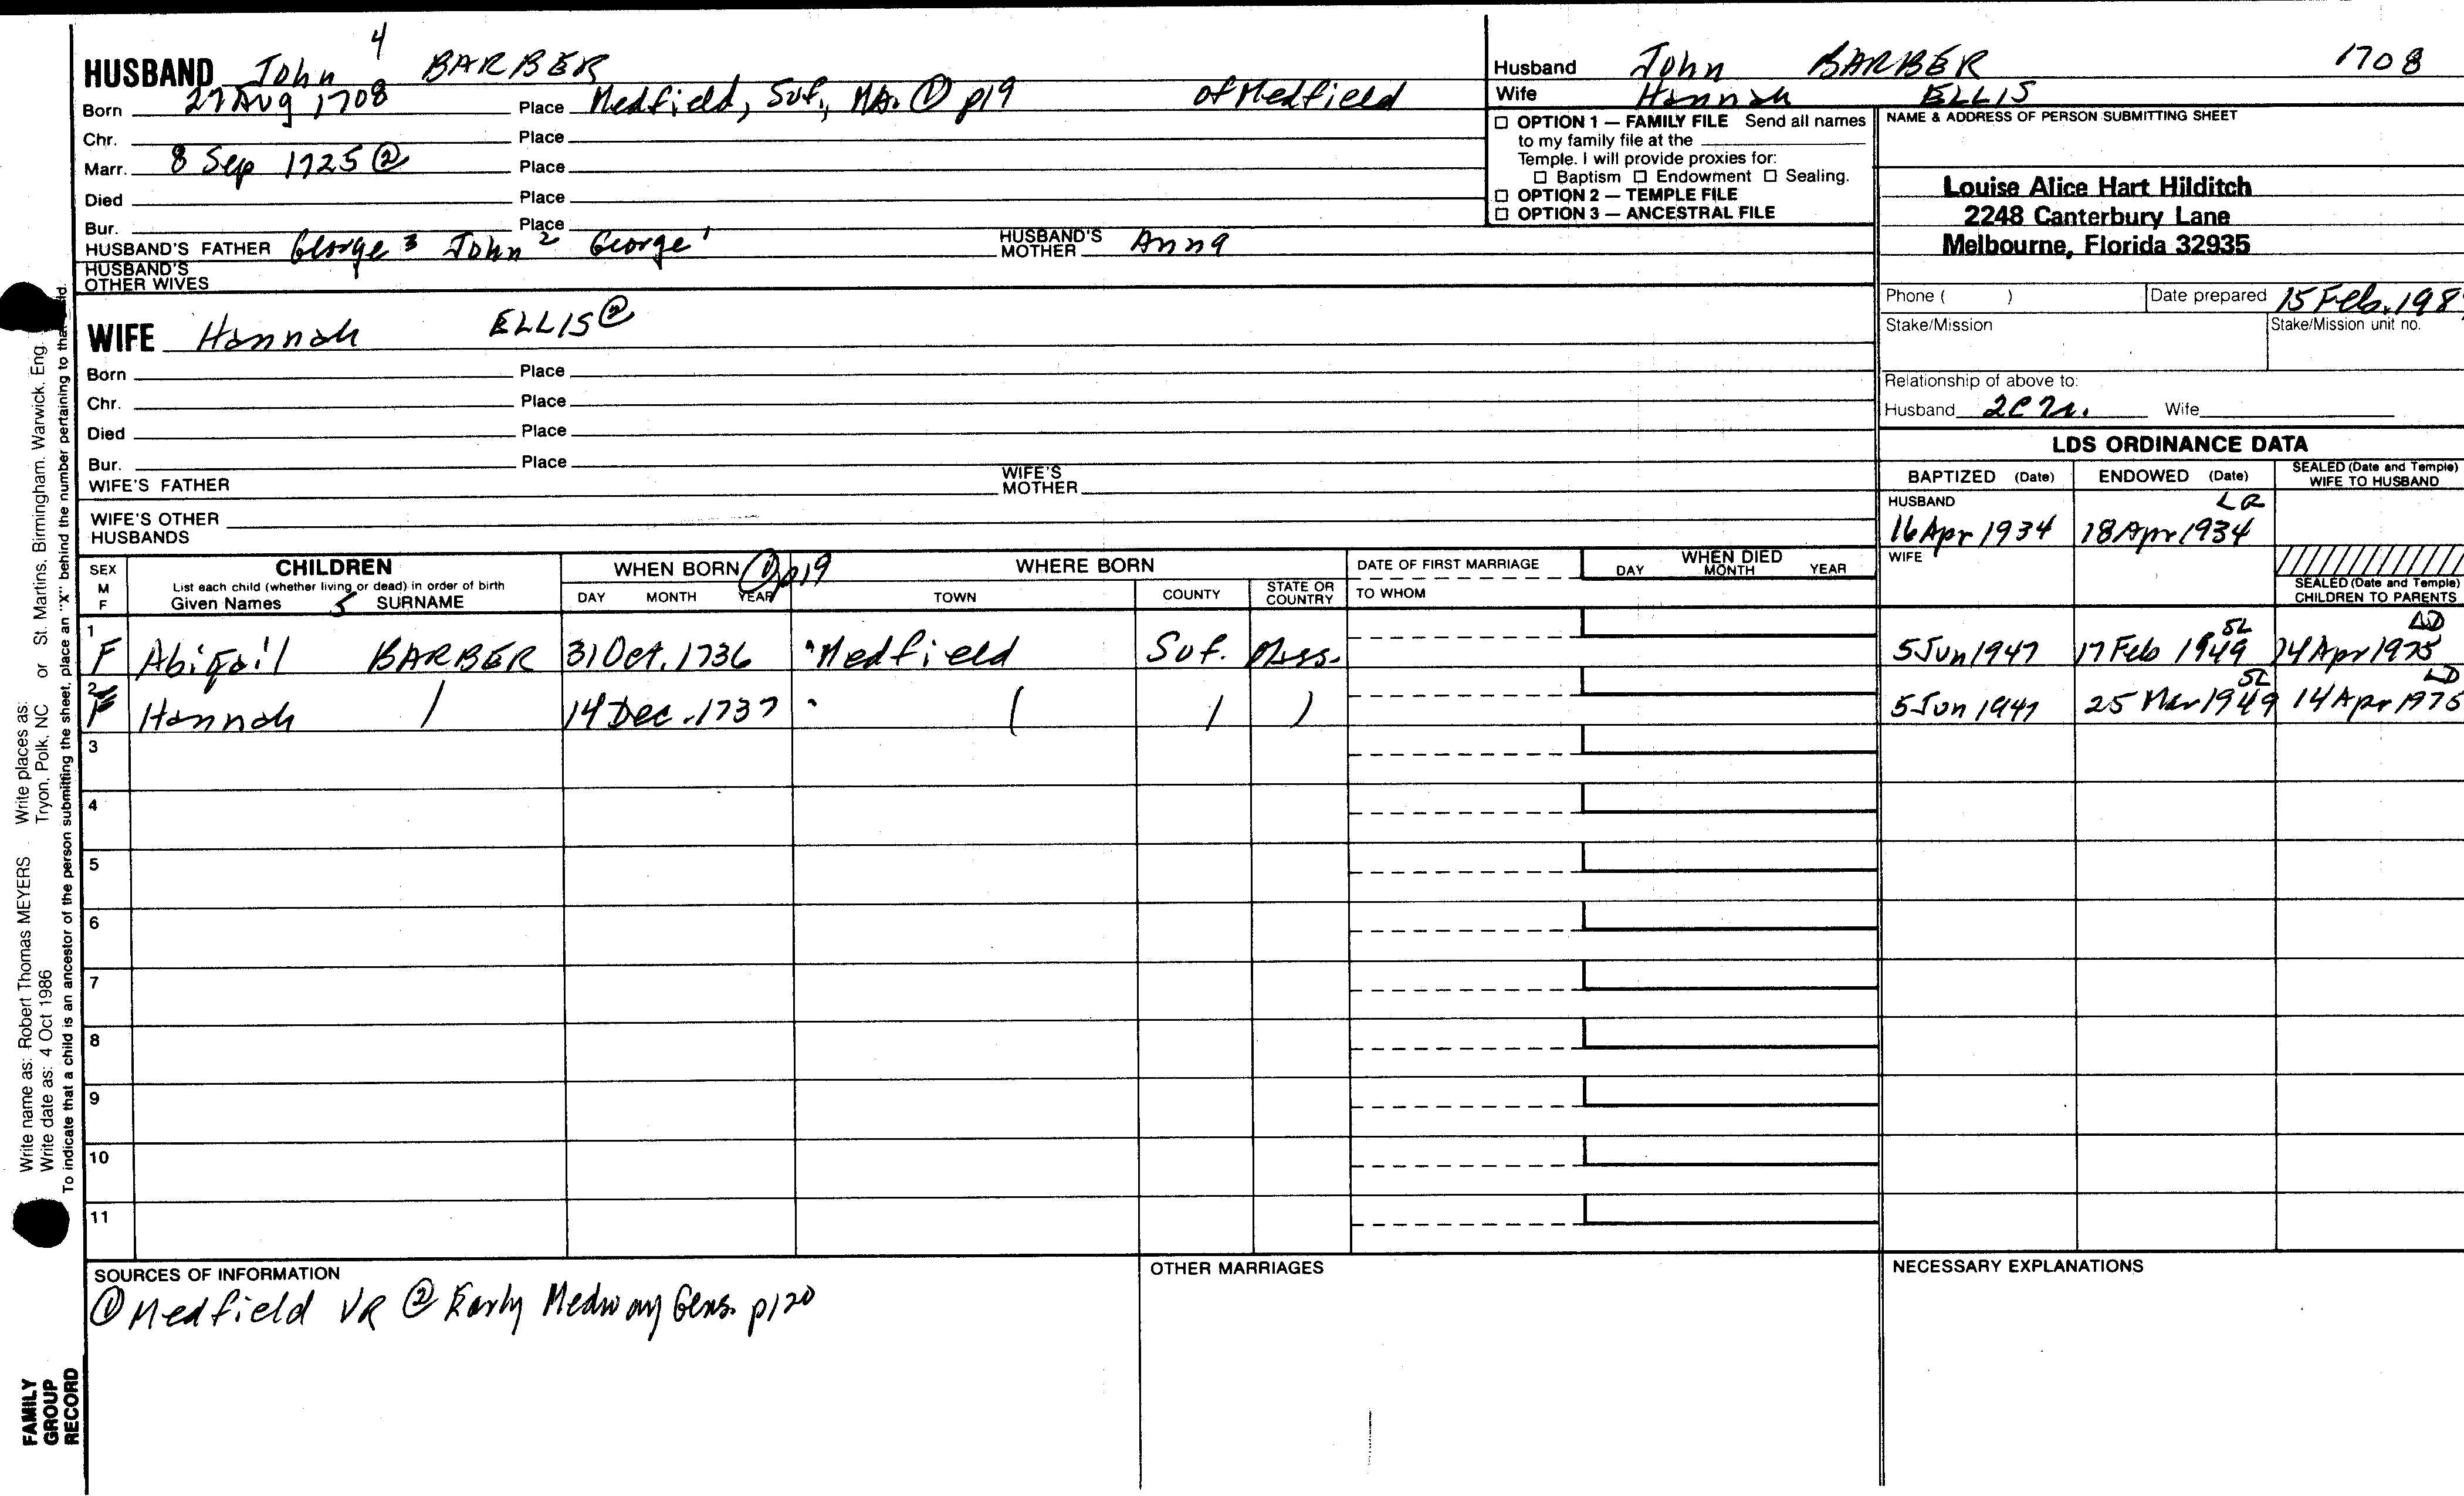 4
HUSBAND John BARBER
Born 27 Aug 1708 Place Medfield, Suf., MA. ① p19 of Medfield
Chr. Place
Marr. 8 Sep 1725 ② Place
Died Place
Bur. Place
HUSBAND'S FATHER George 3 John 2 George 1 HUSBAND'S MOTHER Anna
HUSBAND'S OTHER WIVES
WIFE Hannah ELLIS ②
Born Place
Chr. Place
Died Place
Bur. Place
WIFE'S FATHER WIFE'S MOTHER
WIFE'S OTHER HUSBANDS
Husband John BARBER 1708
Wife Hannah ELLIS
☐ OPTION 1 — FAMILY FILE Send all names
to my family file at the
Temple. I will provide proxies for:
☐ Baptism ☐ Endowment ☐ Sealing.
☐ OPTION 2 — TEMPLE FILE
☐ OPTION 3 — ANCESTRAL FILE
NAME & ADDRESS OF PERSON SUBMITTING SHEET
Louise Alice Hart Hilditch
2248 Canterbury Lane
Melbourne, Florida 32935
Phone ( ) Date prepared 15 Feb. 198
Stake/Mission Stake/Mission unit no.
Relationship of above to:
Husband Wife
LDS ORDINANCE DATA
BAPTIZED (Date) ENDOWED (Date) SEALED (Date and Temple) WIFE TO HUSBAND
HUSBAND
16 Apr 1934 18 Apr 1934
WIFE
SEALED (Date and Temple)
CHILDREN TO PARENTS
SEX M F CHILDREN WHEN BORN ① p19 WHERE BORN DATE OF FIRST MARRIAGE WHEN DIED
List each child (whether living or dead) in order of birth
Given Names 5 SURNAME DAY MONTH YEAR TOWN COUNTY STATE OR COUNTRY TO WHOM DAY MONTH YEAR
1 F Abigail BARBER 31 Oct. 1736 Medfield Suf. Mass. 5 Jun 1947 17 Feb 1949 SL 14 Apr 1975
2 F Hannah / 14 Dec. 1737 ( / ) 5 Jun 1947 25 Mar 1949 SL 14 Apr 1975
3
4
5
6
7
8
9
10
11
SOURCES OF INFORMATION
① Medfield VR ② Early Medway Gens. p120
OTHER MARRIAGES
NECESSARY EXPLANATIONS
Write name as: Robert Thomas MEYERS Write places as:
Write date as: 4 Oct 1986 Tryon, Polk, NC or St. Martins, Birmingham, Warwick, Eng.
To indicate that a child is an ancestor of the person submitting the sheet, place an "X" behind the number pertaining to that
FAMILY
GROUP
RECORD